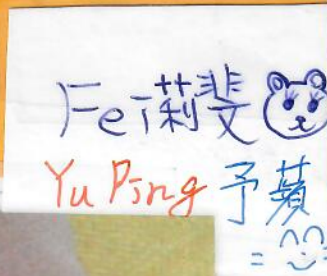 Fei 莉斐
Yu Ping 予蘋